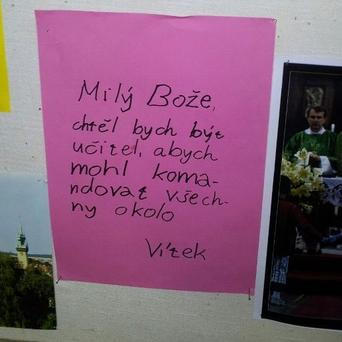 Milý Bože,
chtěl bych být
učitel, abych
mohl koma-
ndovat všech-
ny okolo
Vítek